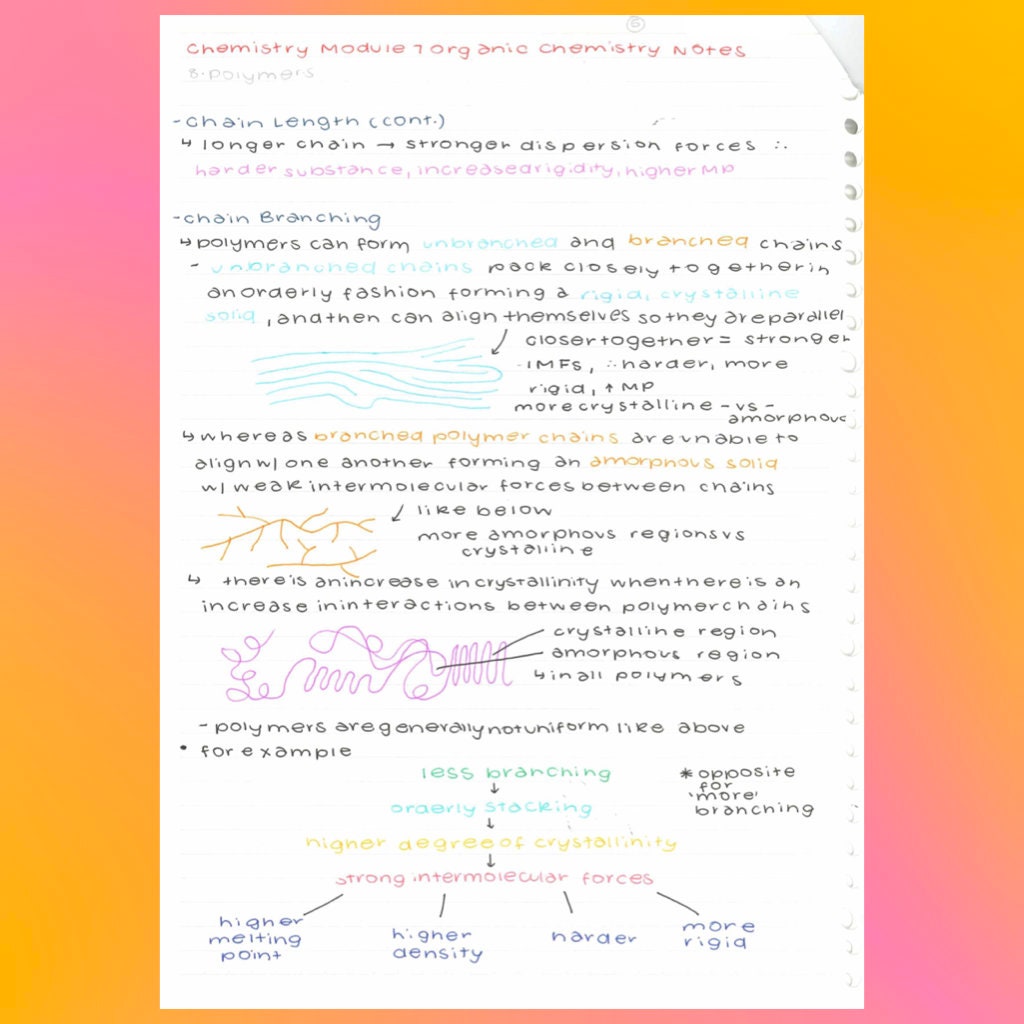 6
Chemistry Module 7 Organic Chemistry Notes
8. Polymers
- Chain Length (cont.)
↳ longer chain → stronger dispersion forces ∴
harder substance, increased rigidity, higher MP
- Chain Branching
↳ polymers can form unbranched and branched chains
- unbranched chains pack closely together in
an orderly fashion forming a rigid, crystalline
solid, and then can align themselves so they are parallel
closer together = stronger
IMFs, ∴ harder, more
rigid, ↑ MP
more crystalline - vs -
amorphous
↳ whereas branched polymer chains are unable to
align w/ one another forming an amorphous solid
w/ weak intermolecular forces between chains
like below
more amorphous regions vs
crystalline
↳ there is an increase in crystallinity when there is an
increase in interactions between polymer chains
crystalline region
amorphous region
↳ in all polymers
- polymers are generally not uniform like above
• for example
less branching
↓
orderly stacking
↓
higher degree of crystallinity
↓
strong intermolecular forces
* opposite
for
'more'
branching
higher
melting
point
higher
density
harder
more
rigid